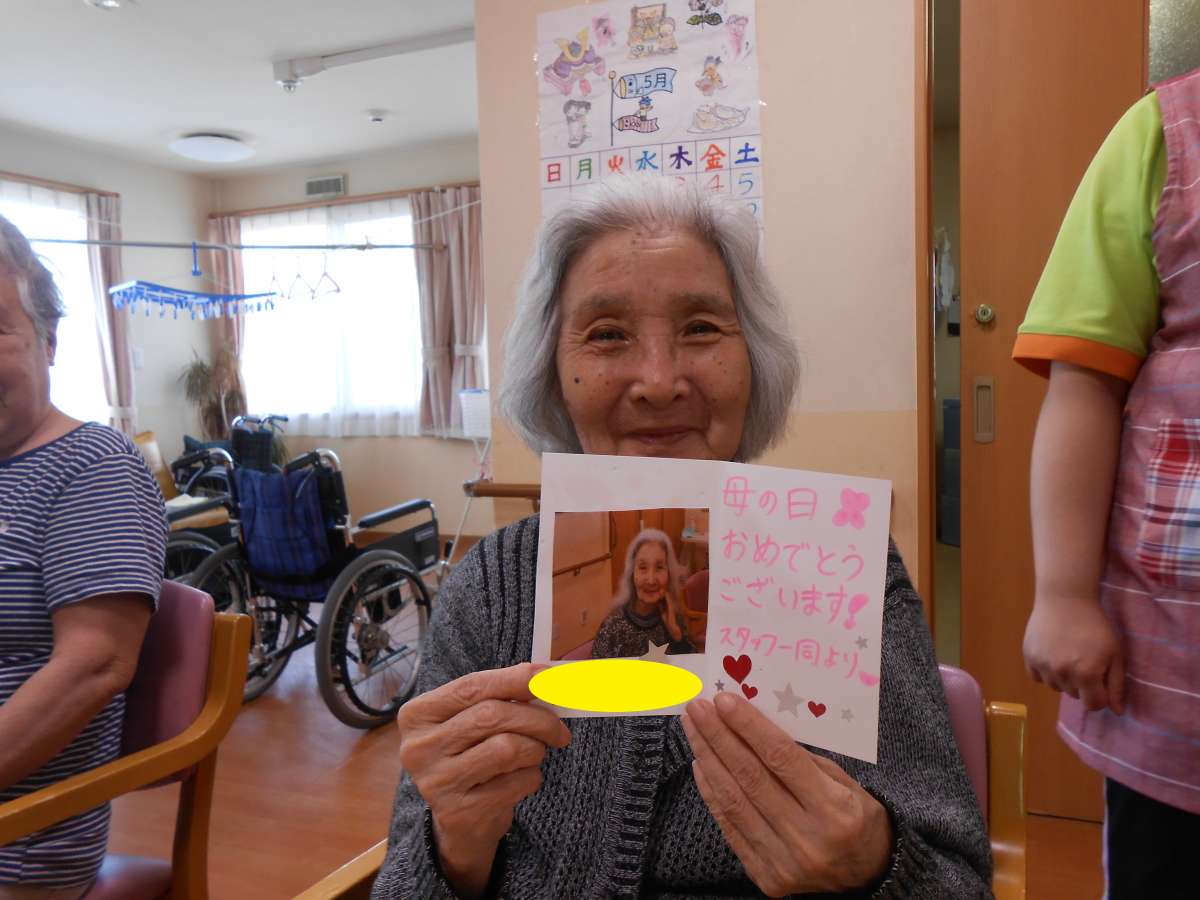 5月
日 月 火 水 木 金 土
4 5
母の日
おめでとう
ございます!
スタッフ一同より